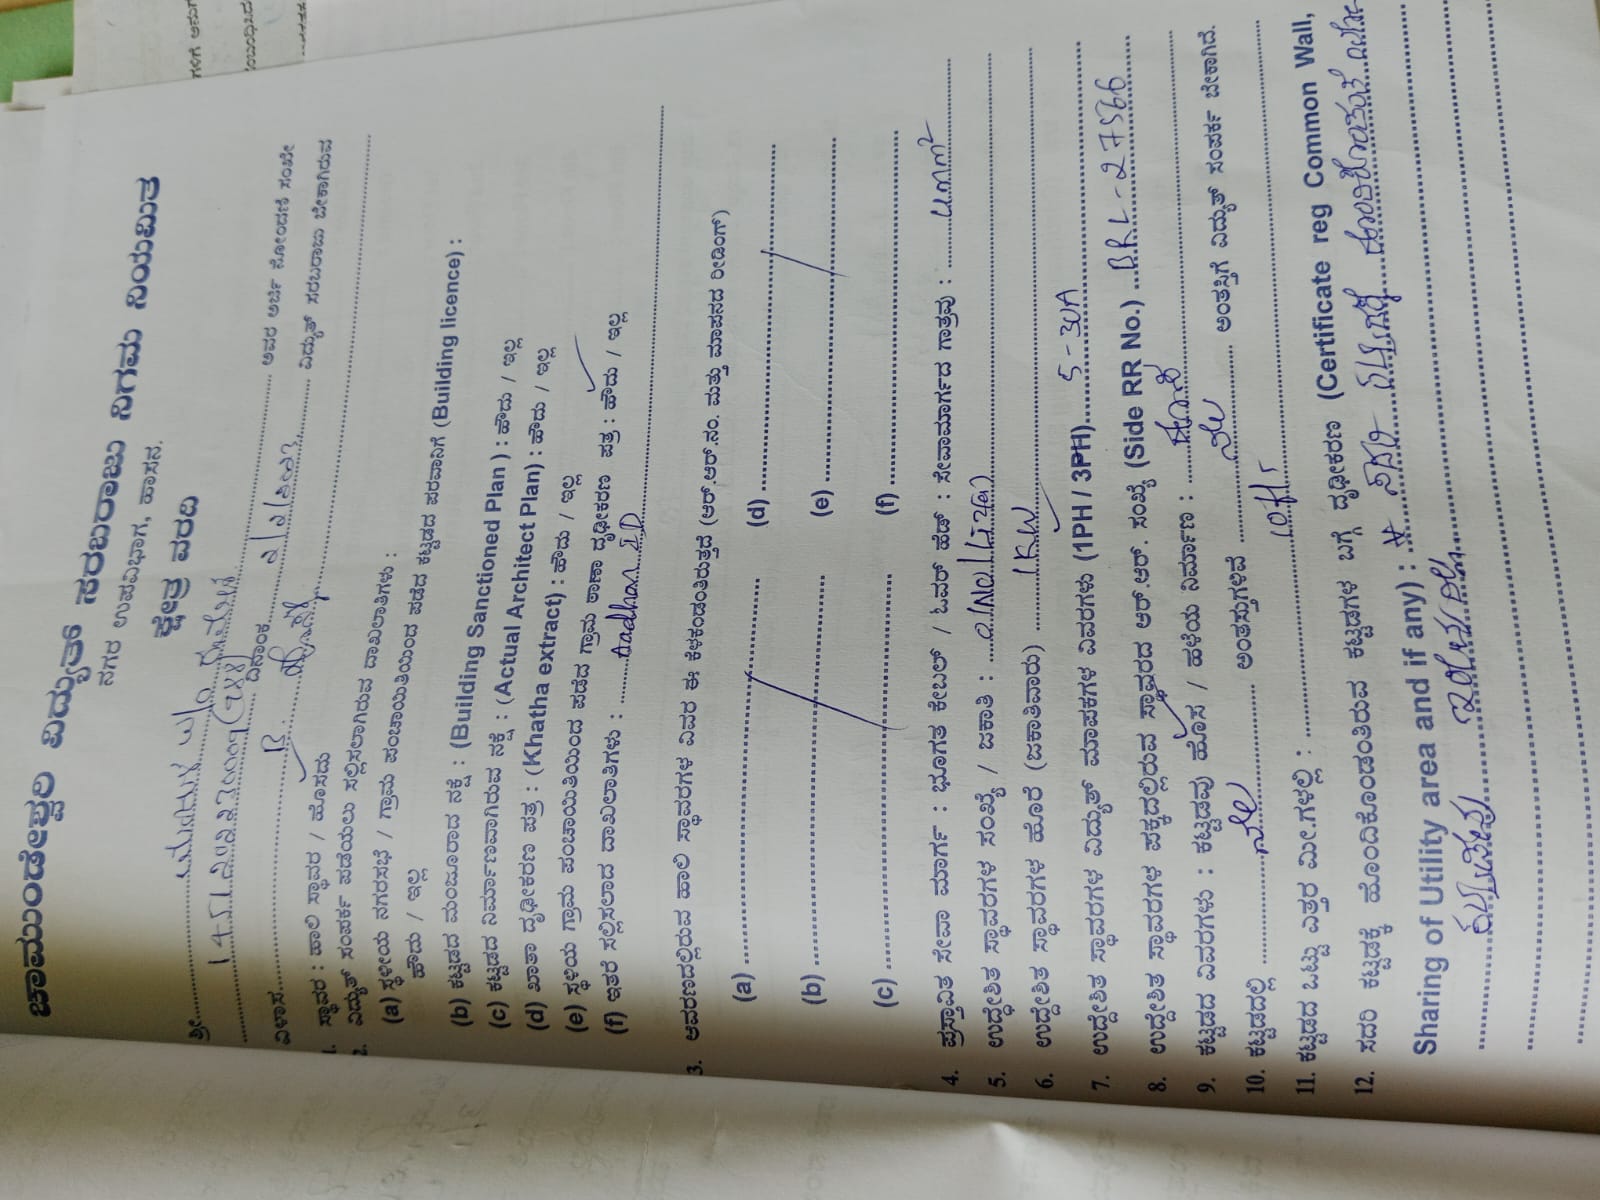 ಚಾಮುಂಡೇಶ್ವರಿ ವಿದ್ಯುತ್ ಸರಬರಾಜು ನಿಗಮ ನಿಯಮಿತ
ನಗರ ಉಪವಿಭಾಗ, ಹಾಸನ.
ಕ್ಷೇತ್ರ ವರದಿ
ಶ್ರೀ
ದಿನಾಂಕ ಅವರ ಅರ್ಜಿ ನೋಂದಣಿ ಸಂಖ್ಯೆ
ವಿಳಾಸ ವಿದ್ಯುತ್ ಸರಬರಾಜು ಬೇಕಾಗಿರುವ
1. ಸ್ಥಾವರ : ಹಾಲಿ ಸ್ಥಾವರ / ಹೊಸದು
2. ವಿದ್ಯುತ್ ಸಂಪರ್ಕ ಪಡೆಯಲು ಸಲ್ಲಿಸಲಾಗಿರುವ ದಾಖಲಾತಿಗಳು :
(a) ಸ್ಥಳೀಯ ನಗರಸಭೆ / ಗ್ರಾಮ ಪಂಚಾಯಿತಿಯಿಂದ ಪಡೆದ ಕಟ್ಟಡದ ಪರವಾನಿಗೆ (Building licence) :
ಹೌದು / ಇಲ್ಲ
(b) ಕಟ್ಟಡದ ಮಂಜೂರಾದ ನಕ್ಷೆ : (Building Sanctioned Plan ) : ಹೌದು / ಇಲ್ಲ
(c) ಕಟ್ಟಡದ ನಿರ್ಮಾಣವಾಗಿರುವ ನಕ್ಷೆ : (Actual Architect Plan) : ಹೌದು / ಇಲ್ಲ
(d) ಖಾತಾ ದೃಢೀಕರಣ ಪತ್ರ : (Khatha extract) : ಹೌದು / ಇಲ್ಲ
(e) ಸ್ಥಳೀಯ ಗ್ರಾಮ ಪಂಚಾಯಿತಿಯಿಂದ ಪಡೆದ ಗ್ರಾಮ ಠಾಣಾ ದೃಢೀಕರಣ ಪತ್ರ : ಹೌದು / ಇಲ್ಲ
(f) ಇತರೆ ಸಲ್ಲಿಸಲಾದ ದಾಖಲಾತಿಗಳು : Aadhar ID
3. ಆವರಣದಲ್ಲಿರುವ ಹಾಲಿ ಸ್ಥಾವರಗಳ ವಿವರ ಈ ಕೆಳಕಂಡಂತಿರುತ್ತದೆ (ಆರ್.ಆರ್.ನಂ. ಮತ್ತು ಮಾಪನದ ರೀಡಿಂಗ್)
(a) (d)
(b) (e)
(c) (f)
4. ಪ್ರಸ್ತಾವಿತ ಸೇವಾ ಮಾರ್ಗ : ಭೂಗತ ಕೇಬಲ್ / ಓವರ್ ಹೆಡ್ : ಸೇವಾಮಾರ್ಗದ ಗಾತ್ರವು :
5. ಉದ್ದೇಶಿತ ಸ್ಥಾವರಗಳ ಸಂಖ್ಯೆ / ಜಕಾತಿ :
6. ಉದ್ದೇಶಿತ ಸ್ಥಾವರಗಳ ಹೊರೆ (ಜಕಾತಿವಾರು) 1KW
7. ಉದ್ದೇಶಿತ ಸ್ಥಾವರಗಳ ವಿದ್ಯುತ್ ಮಾಪಕಗಳ ವಿವರಗಳು (1PH / 3PH) 5-30A
8. ಉದ್ದೇಶಿತ ಸ್ಥಾವರಗಳ ಪಕ್ಕದಲ್ಲಿರುವ ಸ್ಥಾವರದ ಆರ್.ಆರ್. ಸಂಖ್ಯೆ (Side RR No.) BRL-27566
9. ಕಟ್ಟಡದ ವಿವರಗಳು : ಕಟ್ಟಡವು ಹೊಸ / ಹಳೆಯ ನಿರ್ಮಾಣ :
10. ಕಟ್ಟಡದಲ್ಲಿ ನೆಲ ಅಂತಸ್ತುಗಳಿವೆ ನೆಲ ಅಂತಸ್ತಿಗೆ ವಿದ್ಯುತ್ ಸಂಪರ್ಕ ಬೇಕಾಗಿದೆ.
11. ಕಟ್ಟಡದ ಒಟ್ಟು ಎತ್ತರ ಮೀ.ಗಳಲ್ಲಿ : 10ft
12. ಸದರಿ ಕಟ್ಟಡಕ್ಕೆ ಹೊಂದಿಕೊಂಡಂತಿರುವ ಕಟ್ಟಡಗಳ ಬಗ್ಗೆ ದೃಢೀಕರಣ (Certificate reg Common Wall,
Sharing of Utility area and if any) : # ಸದರಿ ಕಟ್ಟಡಕ್ಕೆ ಹೊಂದಿಕೊಂಡಂತೆ